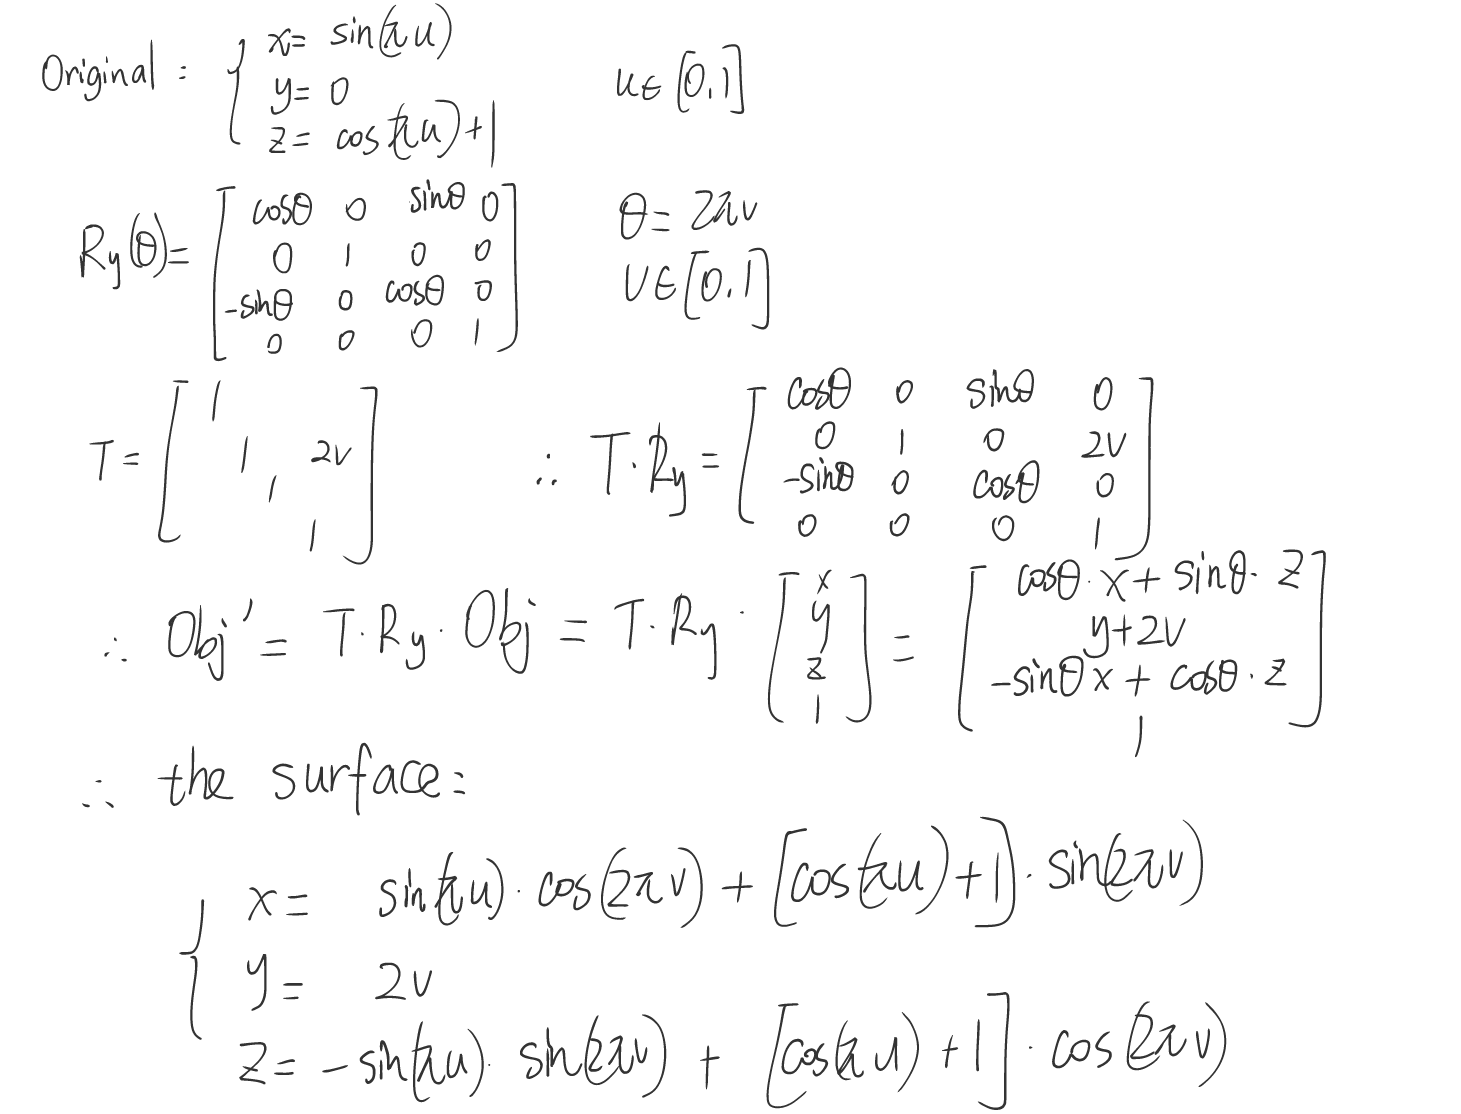 Original : { x= sin(πu)
y= 0 u∈[0,1]
z= cos(πu)+1
Ry(θ)= [ cosθ 0 sinθ 0 θ= 2πv
0 1 0 0
-sinθ 0 cosθ 0 v∈[0,1]
0 0 0 1 ]
T= [ 1
1 2v
1
1 ]
∴ T·Ry= [ cosθ 0 sinθ 0
0 1 0 2v
-sinθ 0 cosθ 0
0 0 0 1 ]
∴ Obj'= T·Ry·Obj = T·Ry· [ x y z 1 ] = [ cosθ·x+ sinθ·z
y+2v
-sinθx+ cosθ·z
1 ]
∴ the surface:
{ x= sin(πu)·cos(2πv)+[cos(πu)+1]·sin(2πv)
y= 2v
z= -sin(πu)·sin(2πv)+[cos(πu)+1]·cos(2πv)